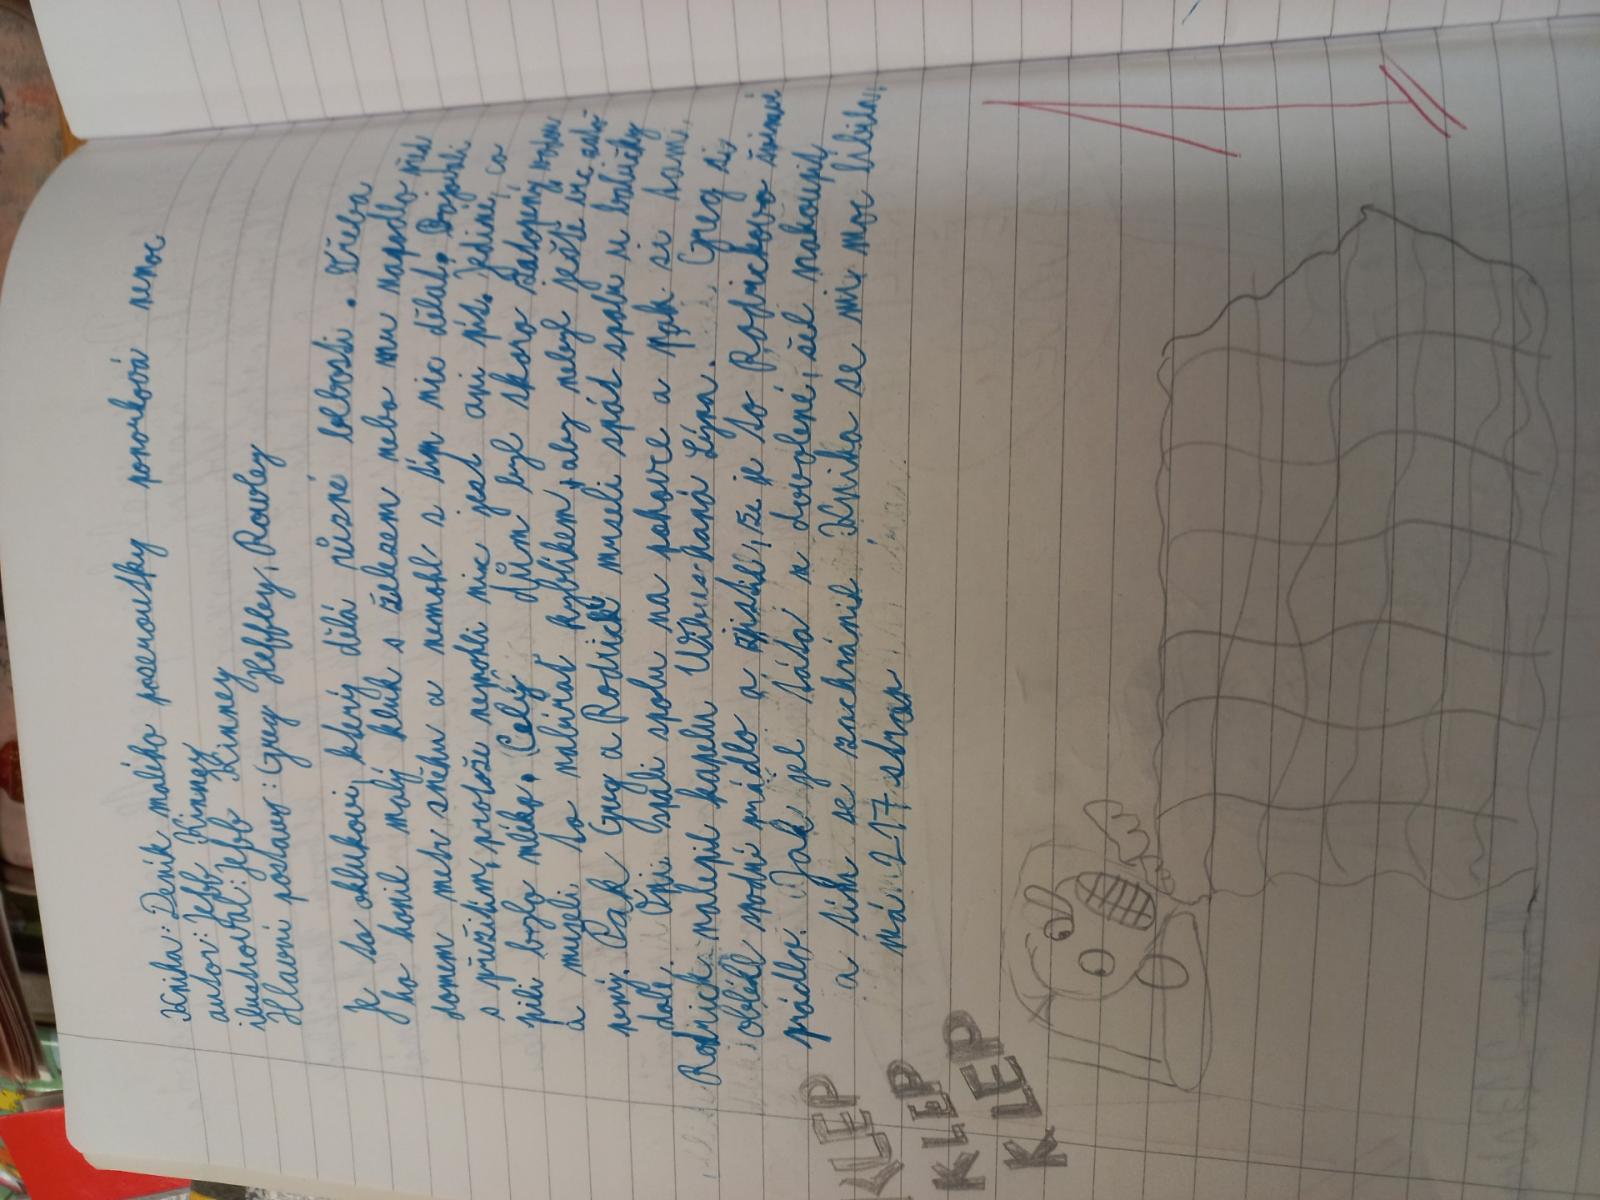 Kniha: Deník malého poseroutky ponorková nemoc
autor: Jeff Kinney
ilustroval: Jeff Kinney
Hlavní postavy: Greg Heffley, Rowley
Je to o klukovi který dělá různé blbosti. Třeba
ho honil malý kluk s železem nebo mu napadlo před
domem metr sněhu a nemohl s tím nic dělat.
s příšidim, protože nepotřeli nic jest ani pít. Jediné, co
pili bylo mléko. Celý dům byl skoro zatopený vodou
a museli to nabírat kyblíkem, aby nebyl ještě víc zato-
pený. Pak Greg a Rodrick museli spát spolu u babičky
dole. Oni spali spolu na pohovce a pak si sami.
Rodrick nalepil kapelu Wilus-haná Lízna. Greg si
oblékl spodní prádlo a zjistil, že je to Rodrickovo špinavé
prádlo. Pak jel táta z dovolené, šel nakoupit
a tím se zachránil. Knížka se mi moc líbila,
má 217 stran
KLEP
KLEP
KLEP
1